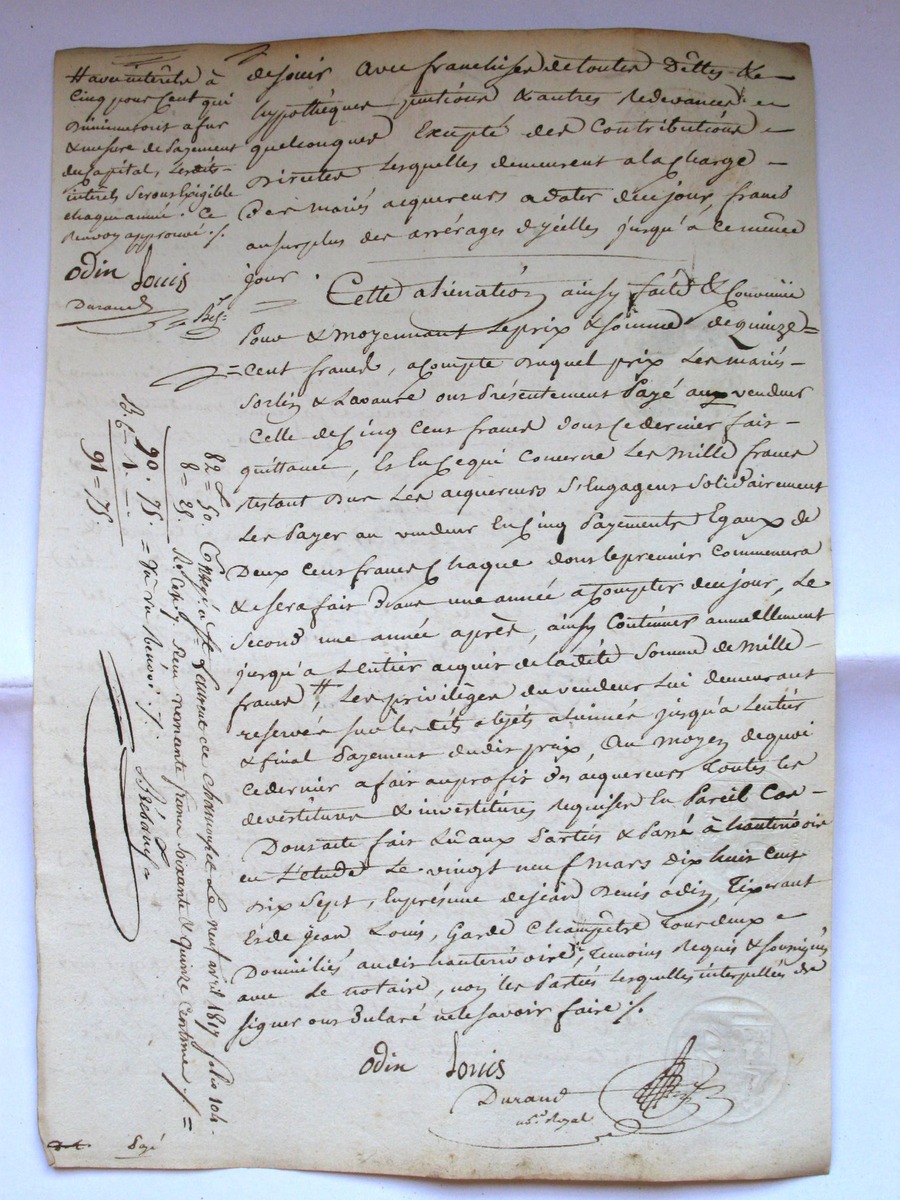 # avec intérêts à
cinq pour cent qui
diminueront a fur
& mesure de payement
du Capital, Lesdits
intérêts Seront Exigible
chaque année. Ce
Renvoy approuvé ./.
odin Louis
Durand
dejouir avec franchise de toutes Dêttes &
hypothèques pentions & autres redevances
quelconques Excepté des Contributions
Directes Lesquelles demeurent a la Charge
des mariés acquereurs a dater de ce jour, francs
au surplus des arrérages d'ycelles jusqu'à ce même
jour.
Cette aliénation ainsy faite & Convenüe
Pour & moyennant Le prix & Sômme de quinze
cent francs, acompte duquel prix Les mariés
Sorlin & Lavaure ont Présentement Payé aux vendeur
Celle de Cinq Cent francs dont ce dernier fait
quittance, Et En ce qui Concerne Les mille francs
restant dus Les acquereurs S'Engagent Solidairement
Les Payer au vendeur En Cinq Payements Egaux de
Deux Cent francs Chaque dont le premier Commencera
& se fera fait Dans une année a Compter de ce jour, Le
Second une année après, ainsy Continuer annuellement
jusqu'a L'entier acquit de ladite Somme de mille
francs #, Les privilèges du vendeur Lui demeurant
reservés sur lesdits objets alienés jusqu'a L'entier
& final Payement dudit prix, Au moyen de quoi
ce dernier a fait au profit des acquereurs Toutes les
devetitures & investitures requises En Pareil Cas
Dont acte fait Lû aux Parties & Passé à hauterivoire
en L'étude Le vingt neuf mars dix huit cent
dix Sept, En présence de jean Denis odin, Tixerant
Et de jean Louis, Garde Champêtre Tous deux
Domiciliés audit hauterivoire, Temoins Requis & Soussignés
avec Le notaire, non les Parties Lesquelles interpellées de
signer ont Déclaré ne le savoir faire ./.
odin Louis
Durand
n.re Royal
82 = 50. Enregé à St Laurent de Chamousset Le neuf avril 1817 folio 104.
8 = 25. Reçu nonante francs Soixante & quinze Centimes ./. =
90. 75. = Dû du Renvoi ./.
1 —
91 = 75.
Payé